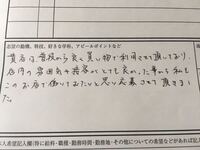 志望の動機、特技、好きな学科、アピールポイントなど
貴店は普段から良く買い物で利用させて頂しており、
店内の雰囲気や接客がとても良かった事から私も
このお店で働いてみたいと思い応募させて頂きまし
た。
本人希望記入欄(特に給料・職種・勤務時間・勤務地・その他についての希望などがあれば記入